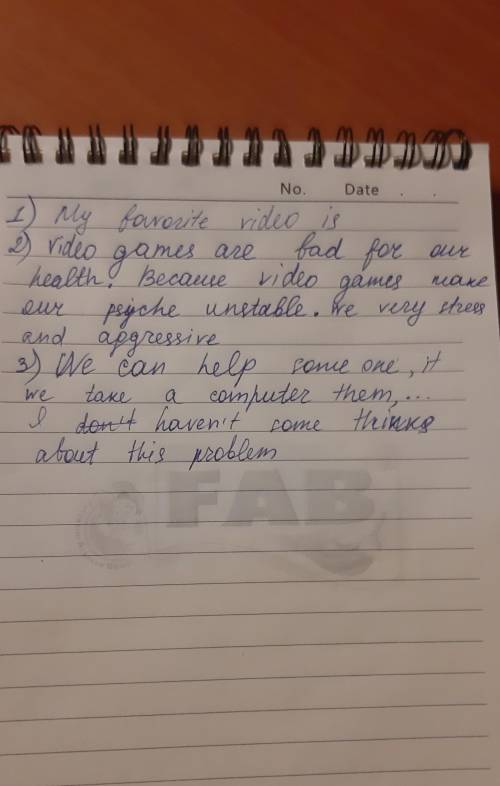 No. Date . .
1) My favorite video is
2) video games are bad for our
health. Because video games make
our psyche unstable. We very stress
and aggressive
3) We can help some one, if
we take a computer them, ...
I don't haven't some thinks
about this problem
FAB